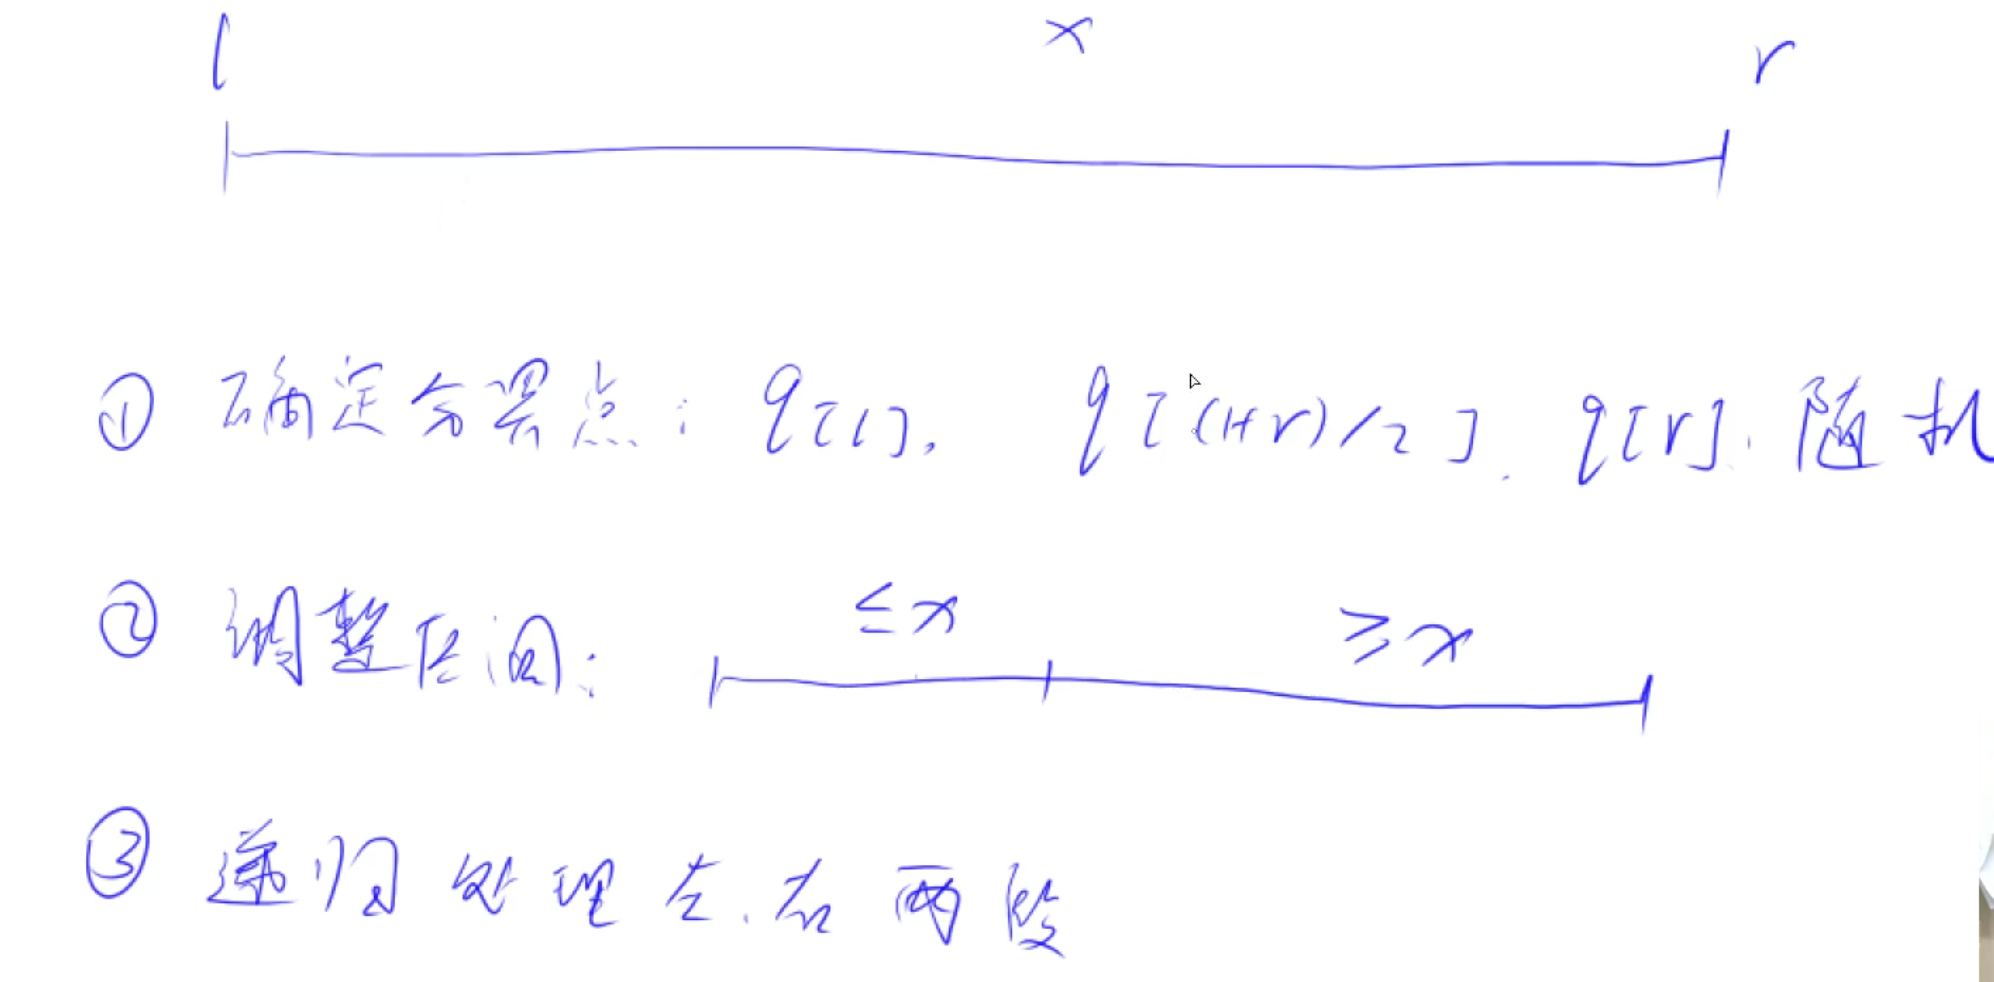 l x r
① 确定分界点: q[l], q[(l+r)/2], q[r], 随机
② 调整区间: ≤x ≥x
③ 递归处理左、右两段